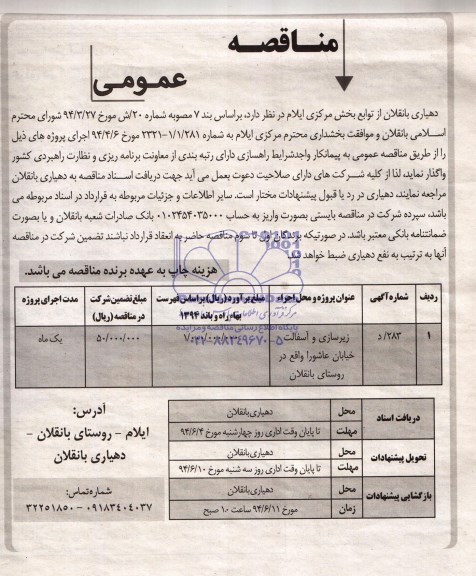 مناقصه
عمومی
دهیاری بانقلان از توابع بخش مرکزی ایلام در نظر دارد، براساس بند ۷ مصوبه شماره ۲۰/ش مورخ ۹۴/۳/۲۷ شورای محترم
اسلامی بانقلان و موافقت بخشداری محترم مرکزی ایلام به شماره ۲۳۲۱-۱/۱/۲۸۱ مورخ ۹۴/۴/۶ اجرای پروژه های ذیل
را از طریق مناقصه عمومی به پیمانکار واجدشرایط راهسازی دارای رتبه بندی از معاونت برنامه ریزی و نظارت راهبردی کشور
واگذار نماید، لذا از کلیه شرکت های دارای صلاحیت دعوت بعمل می آید جهت دریافت اسناد مناقصه به دهیاری بانقلان
مراجعه نمایند، دهیاری در رد یا قبول پیشنهادات مختار است. سایر اطلاعات و جزئیات مربوطه به قرارداد در اسناد مربوطه می
باشد، سپرده شرکت در مناقصه بایستی بصورت واریز به حساب ۰۱۰۲۴۵۴۰۳۵۰۰۰ بانک صادرات شعبه بانقلان و یا بصورت
ضمانتنامه بانکی معتبر باشد. در صورتیکه برندگان اول تا سوم مناقصه حاضر به انعقاد قرارداد نباشند تضمین شرکت در مناقصه
آنها به ترتیب به نفع دهیاری ضبط خواهد شد.
هزینه چاپ به عهده برنده مناقصه می باشد.
ردیف شماره آگهی عنوان پروژه و محل اجراء مبلغ برآورد (ریال) براساس فهرست بهاء راه و باند ۱۳۹۴ مبلغ تضمین شرکت در مناقصه (ریال) مدت اجرای پروژه
۱ ۲۸۳/ د زیرسازی و آسفالت خیابان عاشورا واقع در روستای بانقلان ۵۰/۰۰۰/۰۰۰ یک ماه
پایگاه اطلاع رسانی مناقصه و مزایده
۰۲۱-۸۸۳۴۹۶۷۰-۵
دریافت اسناد محل دهیاری بانقلان
مهلت تا پایان وقت اداری روز چهارشنبه مورخ ۹۴/۶/۴
تحویل پیشنهادات محل دهیاری بانقلان
مهلت تا پایان وقت اداری روز سه شنبه مورخ ۹۴/۶/۱۰
بازگشایی پیشنهادات محل دهیاری بانقلان
زمان مورخ ۹۴/۶/۱۱ ساعت ۱۰ صبح
آدرس:
ایلام - روستای بانقلان -
دهیاری بانقلان
شماره تماس:
۰۹۱۸۳۴۰۴۰۳۷ - ۳۲۲۵۱۸۵۰